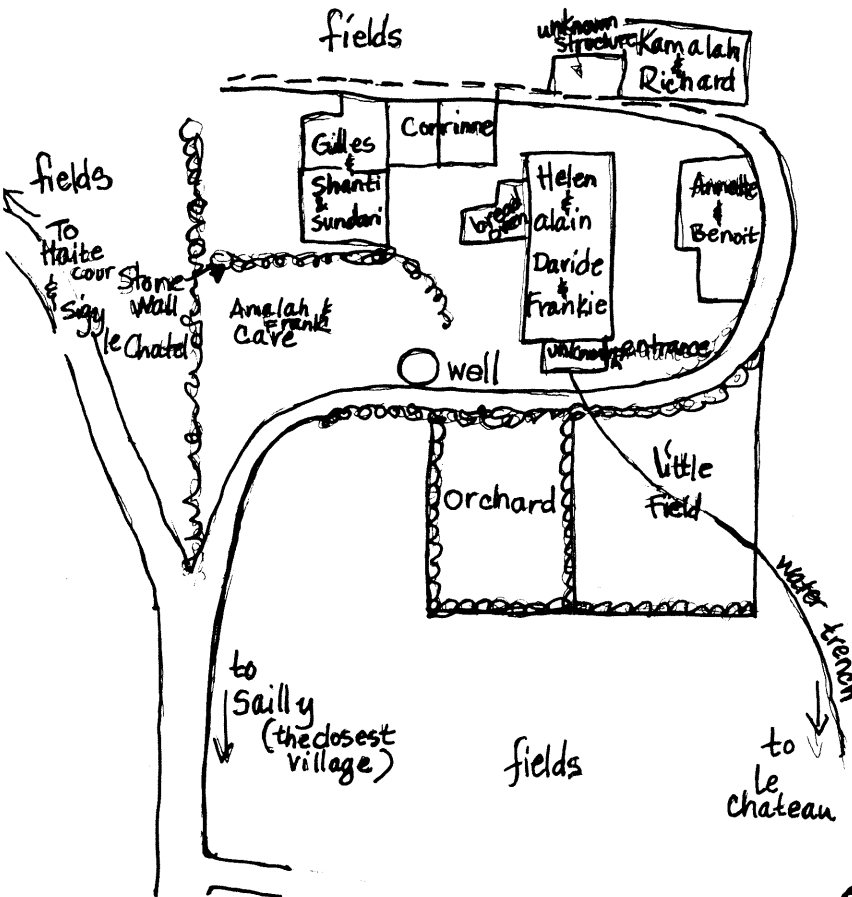 fields
unknown
structure
Kamalah
&
Richard
Gilles
&
Shanti
&
Sundari
Corrinne
Helen
&
alain
Daride
&
Frankie
bread
oven
Annette
&
Benoit
fields
To
Haite
cour
&
Sigy
le Chatel
Stone
Wall
Amalah &
Frank
Care
well
unknown
entrance
orchard
Little
Field
water trench
to
Sailly
(the closest
village)
fields
to
Le
Chateau